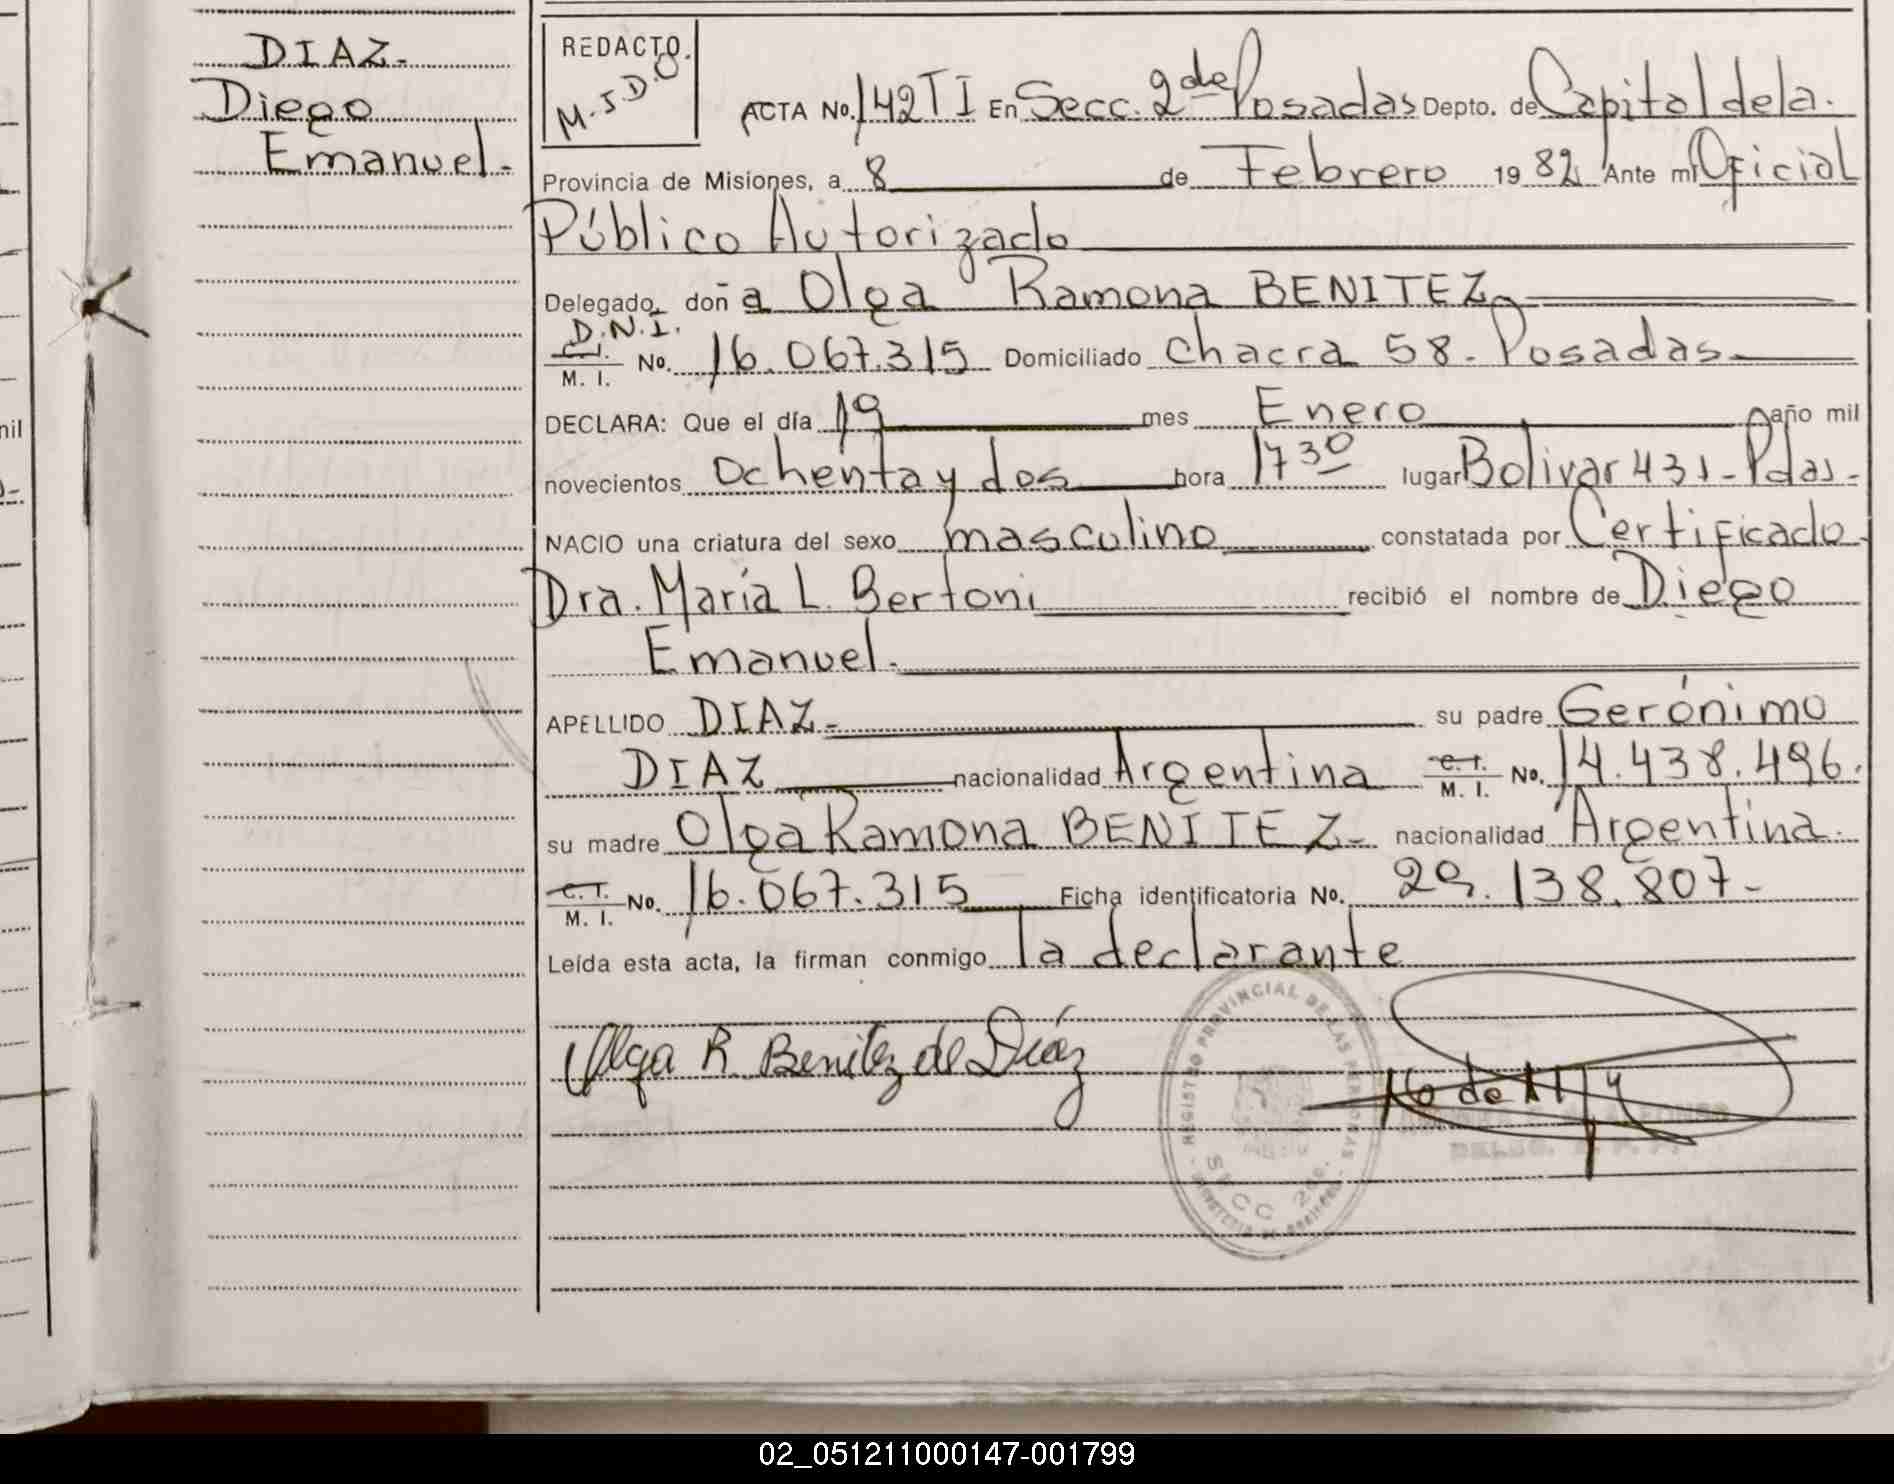 DIAZ-
Diego
Emanuel.-
REDACTO.
M.J.D.O
ACTA No. 142 T I En Secc. 2da Posadas Depto. de Capital de la.
Provincia de Misiones, a 8 de Febrero 1982 Ante mi Oficial
Público Autorizado
Delegado, doña Olga Ramona BENITEZ
D.N.I.
C.I. M. I. No. 16.067.315 Domiciliado Chacra 58.- Posadas
DECLARA: Que el día 19 mes Enero año mil
novecientos Ochenta y dos hora 17 30 lugar Bolivar 431-Pdas-
NACIO una criatura del sexo masculino constatada por Certificado
Dra. María L. Bertoni recibió el nombre de Diego
Emanuel.-
APELLIDO DIAZ.- su padre Gerónimo
DIAZ nacionalidad Argentina C. I. M. I. No. 14.438.496.
su madre Olga Ramona BENITEZ- nacionalidad Argentina.
C. I. M. I. No. 16.067.315 Ficha identificatoria No. 29.138.807-
Leída esta acta, la firman conmigo la declarante
Olga R. Benitez de Diáz
REGISTRO PROVINCIAL DE LAS PERSONAS
SECC 2da.
nil
02_051211000147-001799